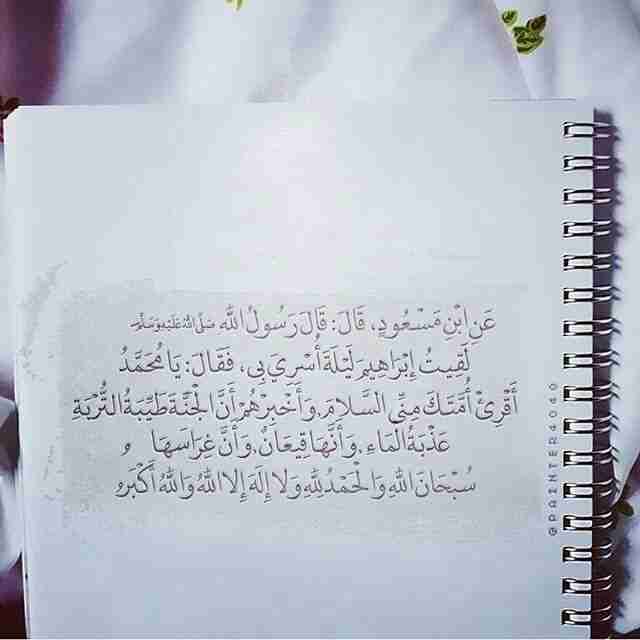 عَنِ ابْنِ مَسْعُودٍ، قَالَ: قَالَ رَسُولُ اللهِ صَلَّى اللهُ عَلَيْهِ وَسَلَّمَ
لَقِيتُ إِبْرَاهِيمَ لَيْلَةَ أُسْرِيَ بِي، فَقَالَ: يَا مُحَمَّدُ
أَقْرِئْ أُمَّتَكَ مِنِّي السَّلَامَ وَأَخْبِرْهُمْ أَنَّ الْجَنَّةَ طَيِّبَةُ التُّرْبَةِ
عَذْبَةُ الْمَاءِ، وَأَنَّهَا قِيعَانٌ، وَأَنَّ غِرَاسَهَا
سُبْحَانَ اللهِ وَالْحَمْدُ لِلهِ وَلَا إِلَهَ إِلَّا اللهُ وَاللهُ أَكْبَرُ
@PAINTER4040